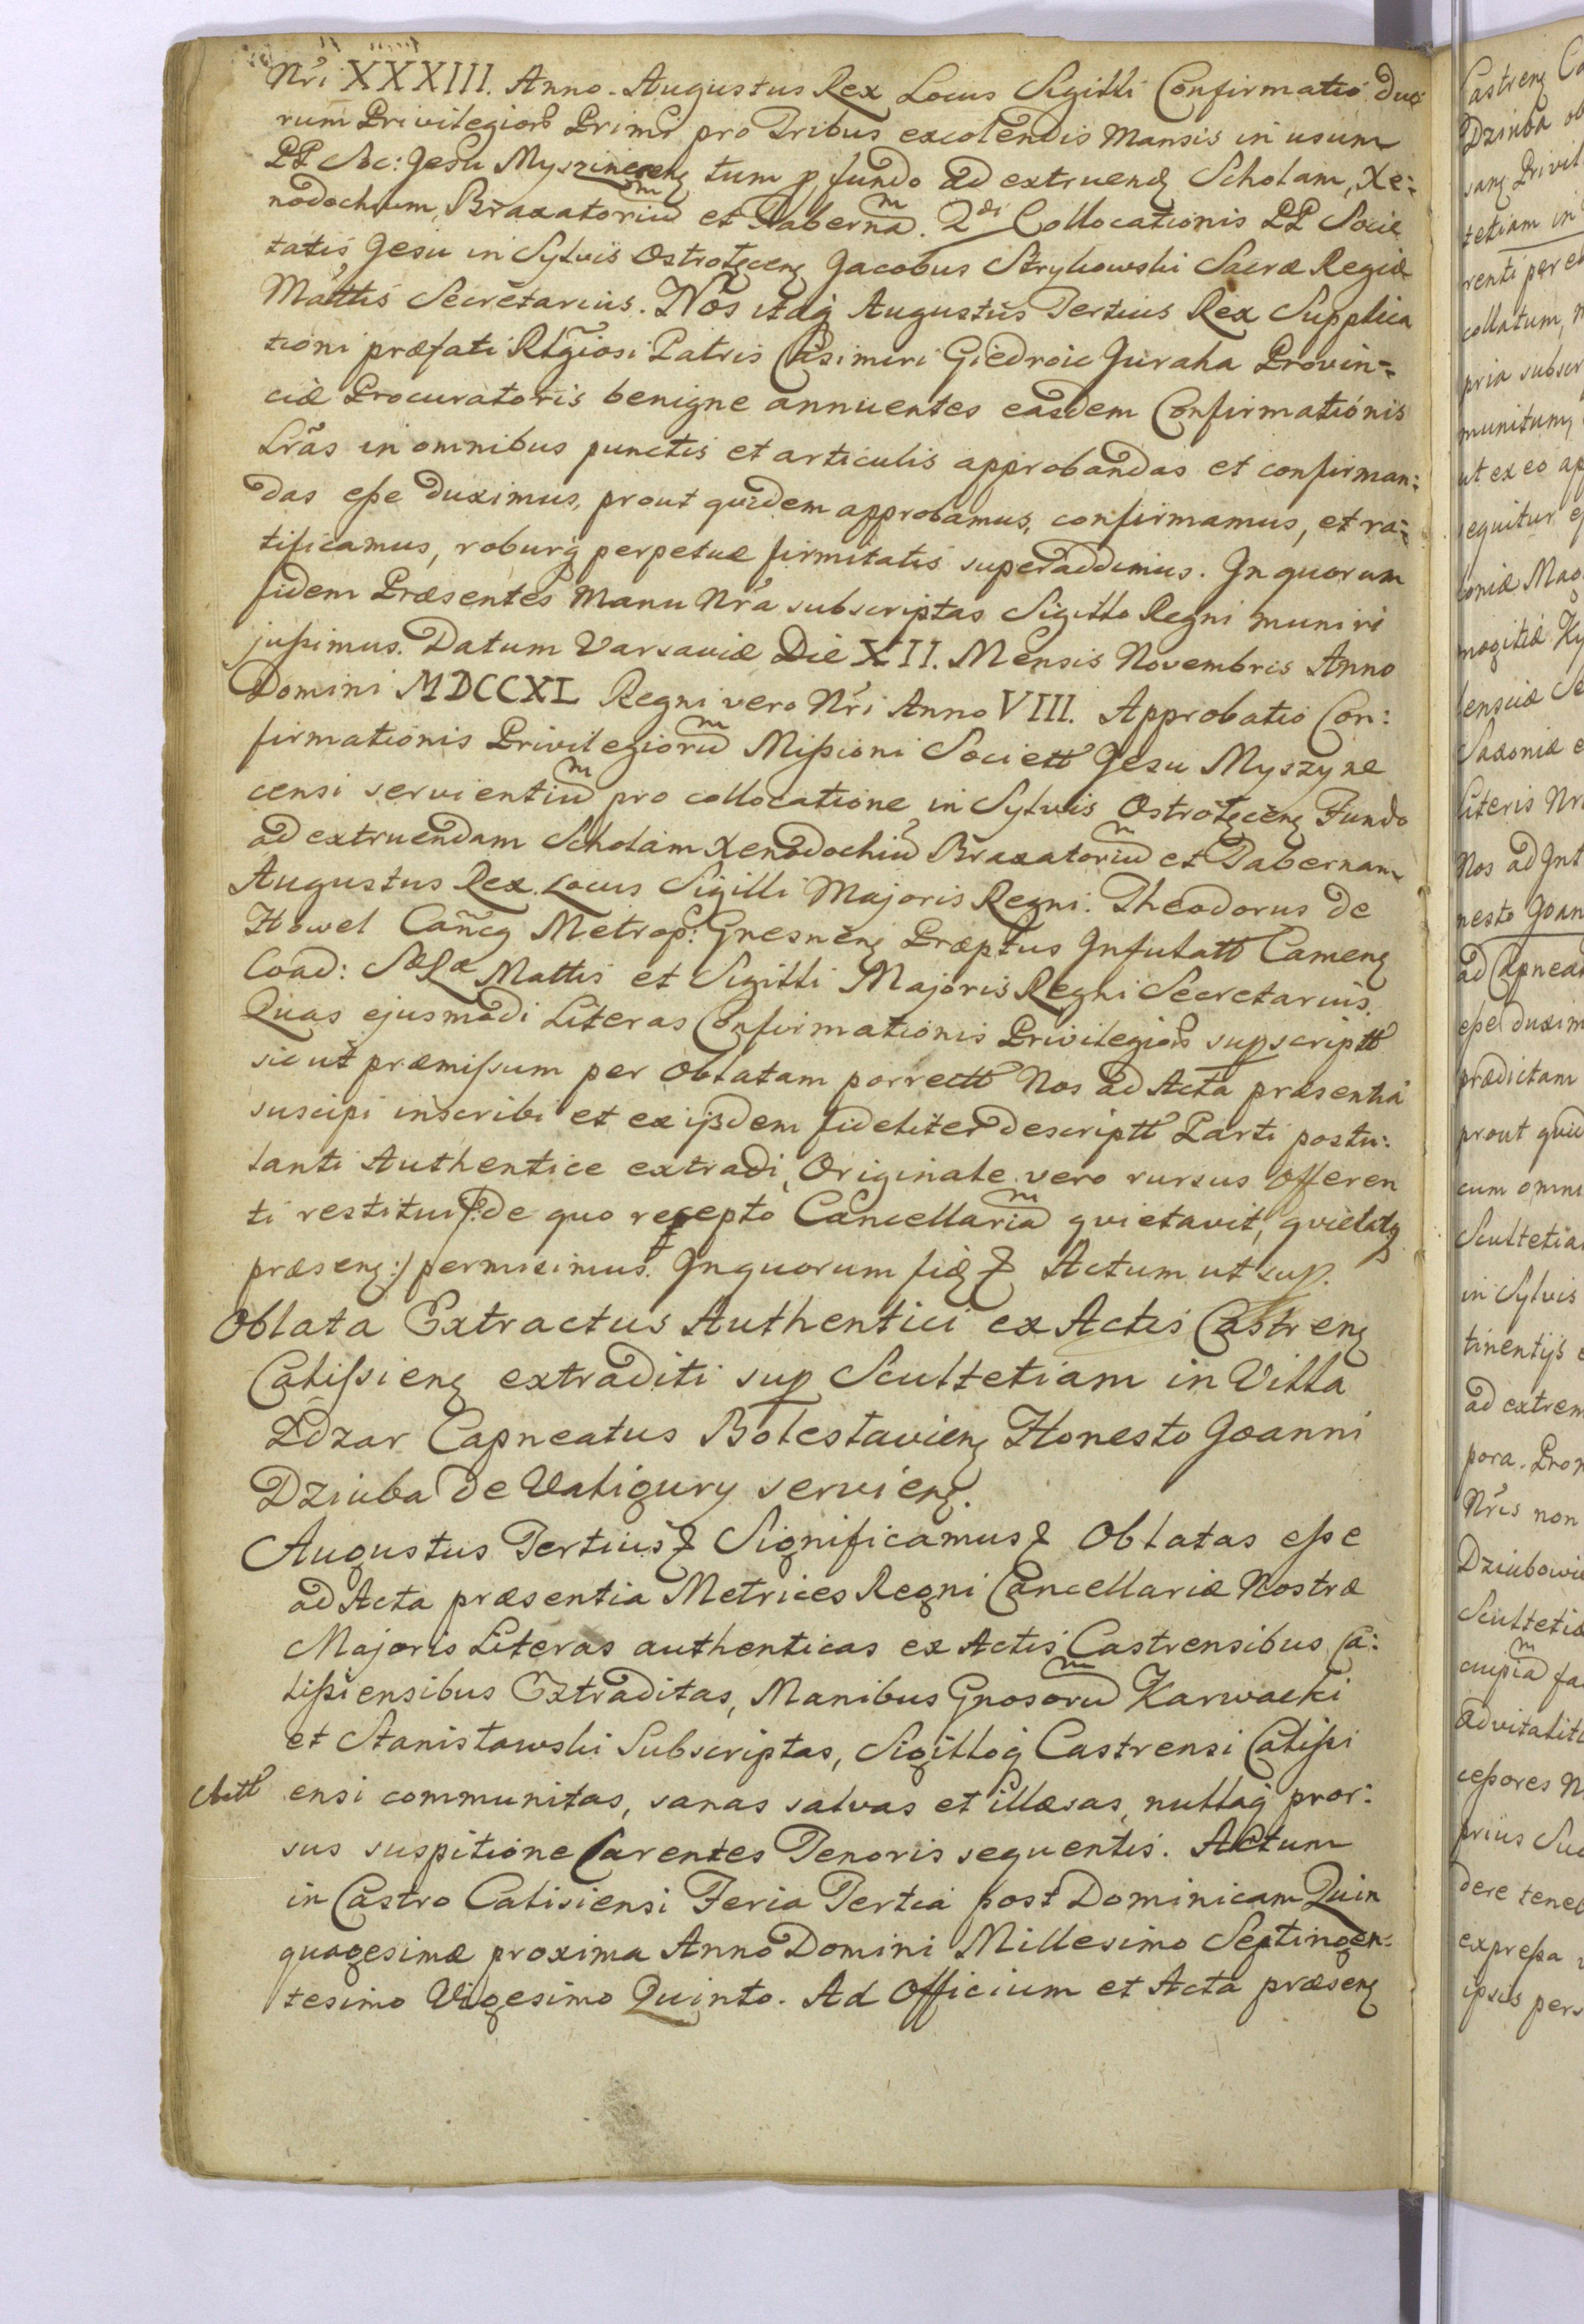 Nr̃i XXXIII. Anno. Augustus Rex Locus Sigilli Confirmatio duo
rum Privilegior̃ Primi pro Tribus excolendis Mansis in usum
PP Soc: Jesu Myszinecens̃ tum p fundo ad extruend̃ Scholam, Xe:
nodochium, Braxatoriũm et Tabernãm. 2di Collocationis PP Socie
tatis Jesu in Sylvis Ostrolęcens̃ Jacobus Strykowski Sacræ Regiæ
Mattis Secretarius. Nos itaq̃ Augustus Tertius Rex Supplica
tioni præfati Rlg̃iosi Patris Casimiri Giedroic Juraha Provin=
ciæ Procuratoris benigne annuentes easdem Confirmationis
Lr̃as in omnibus punctis et articulis approbandas et confirman:
das eſse duximus, prout quidem approbamus, confirmamus, et ra:
tificamus, roburq̃ perpetuæ firmitatis superaddimus. In quorum
fidem Præsentes Manu Nr̃a subscriptas Sigillo Regni muniri
juſsimus. Datum Varsaviæ Die XII. Mensis Novembris Anno
Domini MDCCXL Regni vero Nr̃i Anno VIII. Approbatio Con:
firmationis Privilegiorũm Miſsioni Societt̃ Jesu Myszyne
censi servientiũm pro collocatione in Sylvis Ostrołęcens̃ Fundo
ad extruendam Scholam Xenodochiũ Braxatoriũm et Tabernam
Augustus Rex. Locus Sigilli Majoris Regni. Theodorus de
Howel Cañcq Metrop: Gnesnens̃ Præptus Infulatt̃ Camens̃
Coad: SæRæ Mattis et Sigilli Majoris Regni Secretarius.
Quas ejusmodi Literas Confirmationis Privilegior̃ supscriptt̃
sic ut præmiſsum per Oblatam porrectt̃ Nos ad Acta præsentia
suscipi inscribi et ex ijsdem fideliter descriptt̃ Parti postu:
lanti Authentice extradi, Originale vero rursus offeren
ti restitui /:de quo recepto Cancellariãm quietavit, quietatq̃
præsens̃:/ permisimus. In quorum fid̃ & Actum ut sup.
Oblata Extractus Authentici ex Actis Castrens̃
Caliſsiens̃ extraditi sup Scultetiam in Villa
Zdzar Capneatus Boleslaviens̃ Honesto Joanni
Dziuba de Valigury serviens̃.
Augustus Tertius & Significamus & Oblatas eſse
ad Acta præsentia Metrices Regni Cancellariæ Nostræ
Majoris Literas authenticas ex Actis Castrensibus Ca:
liſsiensibus Extraditas, Manibus Gnosorũm Karwacki
et Stanisławski Subscriptas, Sigilloq̃ Castrensi Caliſsi
ensi communitas, sanas salvas et illæsas, nullaq̃ pror:
sus suspitione Carentes Tenoris sequentis. Actum
in Castro Calisiensi Feria Tertia post Dominicam Quin
quagesimæ proxima Anno Domini Millesimo Septingen:
tesimo Vigesimo Quinto. Ad Officium et Acta præsens̃